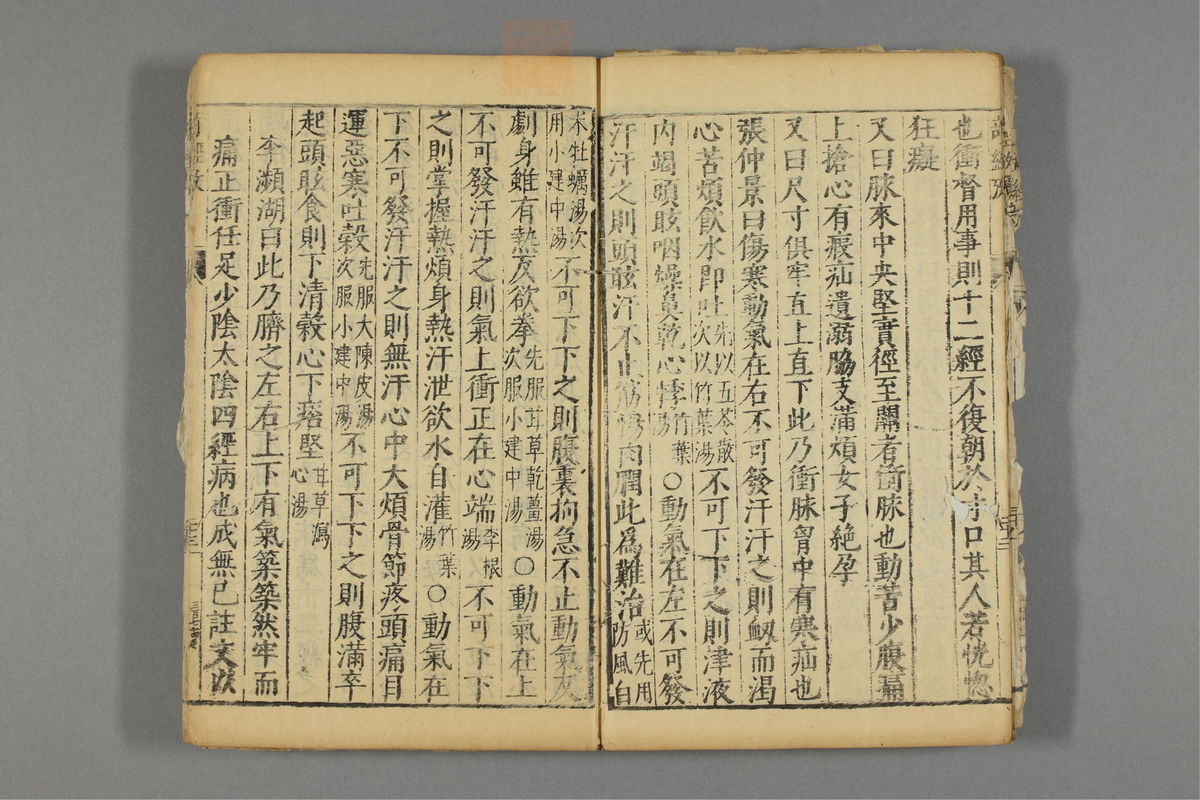 也衝督用事則十二經不復朝於寸口其人若恍惚
狂癡
又曰脉來中央堅實徑至關者衝脉也動苦少腹痛
上搶心有瘕疝遺溺脇支滿煩女子絶孕
又曰尺寸俱牢直上直下此乃衝脉胷中有寒疝也
張仲景曰傷寒動氣在右不可發汗汗之則衂而渴
心苦煩飲水即吐先以五苓散次以竹葉湯不可下下之則津液
内竭頭眩咽燥鼻乾心悸竹葉湯○動氣在左不可發
汗汗之則頭眩汗不止筋惕肉瞤此爲難治或先用防風白
术牡蠣湯次用小建中湯不可下下之則腹裏拘急不止動氣反
劇身雖有熱反欲拳先服甘草乾薑湯次服小建中湯○動氣在上
不可發汗汗之則氣上衝正在心端李根湯不可下下
之則掌握熱煩身熱汗泄欲水自灌竹葉湯○動氣在
下不可發汗汗之則無汗心中大煩骨節疼頭痛目
運惡寒吐穀先服大陳皮湯次服小建中湯不可下下之則腹滿卒
起頭眩食則下清穀心下痞堅甘草瀉心湯
李瀕湖曰此乃臍之左右上下有氣築築然牢而
痛正衝任足少陰太陰四經病也成無已註文以